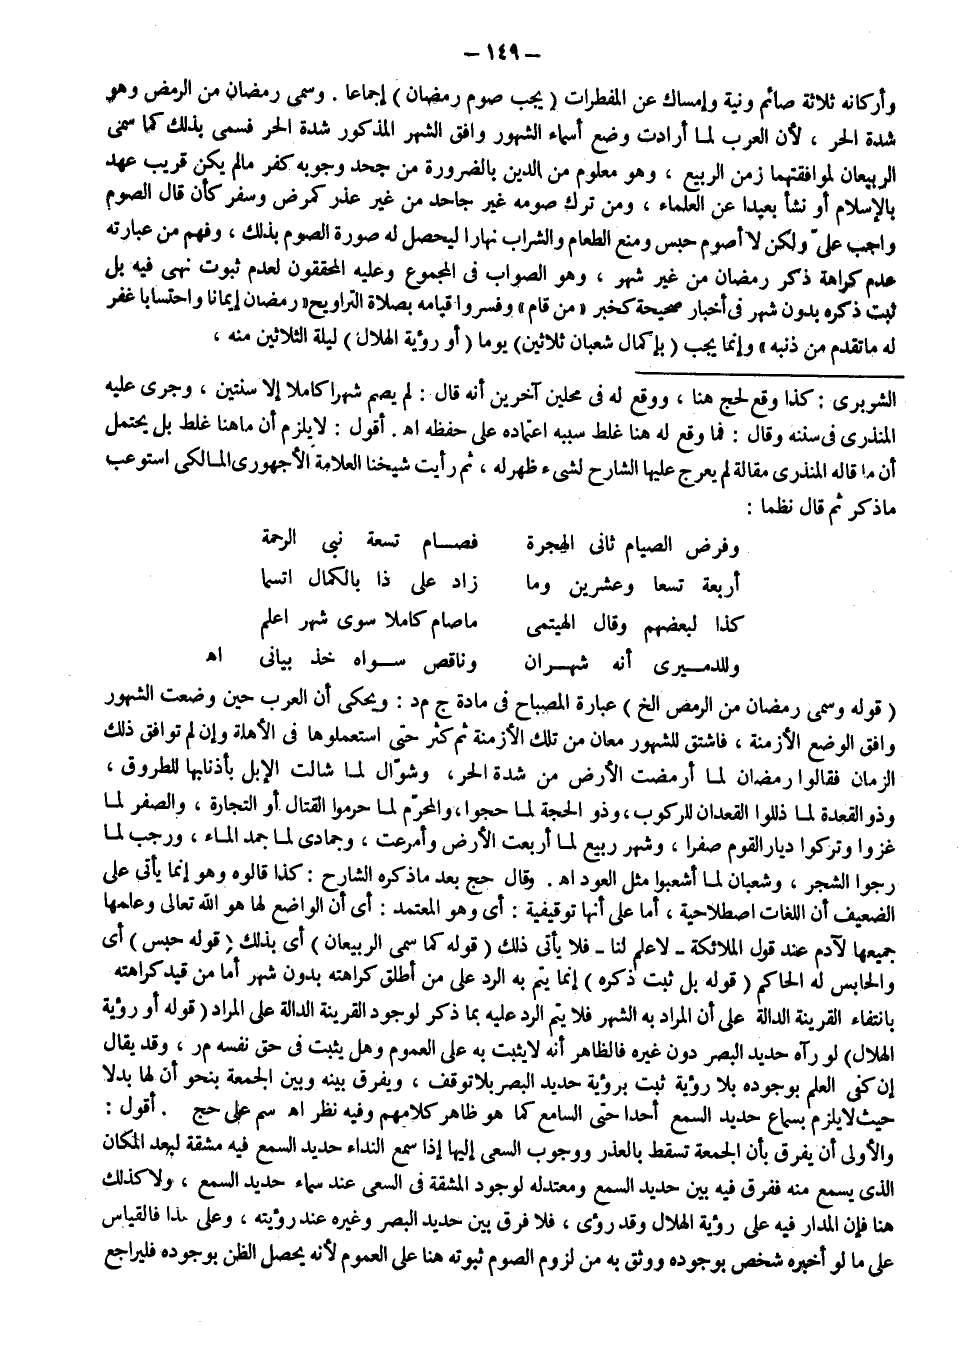 – ١٤٩ –
وأركانه ثلاثة صائم ونية وإمساك عن المفطرات ( يجب صوم رمضان ) إجماعا . وسمى رمضان من الرمض وهو
شدة الحر ، لأن العرب لما أرادت وضع أسماء الشهور وافق الشهر المذكور شدة الحر فسمى بذلك كما سمى
الربيعان لموافقتهما زمن الربيع ، وهو معلوم من الدين بالضرورة من جحد وجوبه كفر مالم يكن قريب عهد
بالإسلام أو نشأ بعيدا عن العلماء ، ومن ترك صومه غير جاحد من غير عذر كمرض وسفر كأن قال الصوم
واجب علىّ ولكن لا أصوم حبس ومنع الطعام والشراب نهارا ليحصل له صورة الصوم بذلك ، وفهم من عبارته
عدم كراهة ذكر رمضان من غير شهر ، وهو الصواب فى المجموع وعليه المحققون لعدم ثبوت نهى فيه بل
ثبت ذكره بدون شهر فى أخبار صحيحة كخبر « من قام » وفسروا قيامه بصلاة التراويح « رمضان إيمانا واحتسابا غفر
له ماتقدم من ذنبه » وإنما يجب ( بإكمال شعبان ثلاثين ) يوما ( أو رؤية الهلال ) ليلة الثلاثين منه ،
الشوبرى : كذا وقع لحج هنا ، ووقع له فى محلين آخرين أنه قال : لم يصم شهرا كاملا إلا سنتين ، وجرى عليه
المنذرى فى سننه وقال : فما وقع له هنا غلط سببه اعتماده على حفظه اه . أقول : لايلزم أن ماهنا غلط بل يحتمل
أن ما قاله المنذرى مقالة لم يعرج عليها الشارح لشىء ظهر له ، ثم رأيت شيخنا العلامة الأجهورى المالكى استوعب
ماذكر ثم قال نظما :
وفرض الصيام ثانى الهجرة فصام تسعة نبى الرحمة
أربعة تسعا وعشرين وما زاد على ذا بالكمال اتسما
كذا لبعضهم وقال الهيتمى ماصام كاملا سوى شهر اعلم
وللدميرى أنه شهران وناقص سواه خذ بيانى اه
( قوله وسمى رمضان من الرمض الخ ) عبارة المصباح فى مادة ج م د : ويحكى أن العرب حين وضعت الشهور
وافق الوضع الأزمنة ، فاشتق للشهور معان من تلك الأزمنة ثم كثر حتى استعملوها فى الأهلة وإن لم توافق ذلك
الزمان فقالوا رمضان لما أرمضت الأرض من شدة الحر ، وشوّال لما شالت الإبل بأذنابها للطروق ،
وذو القعدة لما ذللوا القعدان للركوب ، وذو الحجة لما حجوا ، والمحرّم لما حرموا القتال أو التجارة ، والصفر لما
غزوا وتركوا ديار القوم صفرا ، وشهر ربيع لما أربعت الأرض وأمرعت ، وجمادى لما جمد الماء ، ورجب لما
رجبوا الشجر ، وشعبان لما أشعبوا مثل العود اه . وقال حج بعد ماذكره الشارح : كذا قالوه وهو إنما يأتى على
الضعيف أن اللغات اصطلاحية ، أما على أنها توقيفية : أى وهو المعتمد : أى أن الواضع لها هو الله تعالى وعلمها
جميعها لآدم عند قول الملائكة ـ لاعلم لنا ـ فلا يأتى ذلك ( قوله كما سمى الربيعان ) أى بذلك ( قوله حبس ) أى
والحابس له الحاكم ( قوله بل ثبت ذكره ) إنما يتم به الرد على من أطلق كراهته بدون شهر أما من قيد كراهته
بانتفاء القرينة الدالة على أن المراد به الشهر فلا يتم الرد عليه بما ذكر لوجود القرينة الدالة على المراد ( قوله أو رؤية
الهلال ) لو رآه حديد البصر دون غيره فالظاهر أنه لايثبت به على العموم وهل يثبت فى حق نفسه م ر ، وقد يقال
إن كفى العلم بوجوده بلا رؤية ثبت برؤية حديد البصر بلا توقف ، ويفرق بينه وبين الجمعة بنحو أن لها بدلا
حيث لايلزم بسماع حديد السمع أحدا حتى السامع كما هو ظاهر كلامهم وفيه نظر اه سم على حج . أقول :
والأولى أن يفرق بأن الجمعة تسقط بالعذر ووجوب السعى إليها إذا سمع النداء حديد السمع فيه مشقة لبعد المكان
الذى يسمع منه ففرق فيه بين حديد السمع ومعتدله لوجود المشقة فى السعى عند سماء حديد السمع ، ولا كذلك
هنا فإن المدار فيه على رؤية الهلال وقد رؤى ، فلا فرق بين حديد البصر وغيره عند رؤيته ، وعلى هذا فالقياس
على ما لو أخبره شخص بوجوده ووثق به من لزوم الصوم ثبوته هنا على العموم لأنه يحصل الظن بوجوده فليراجع